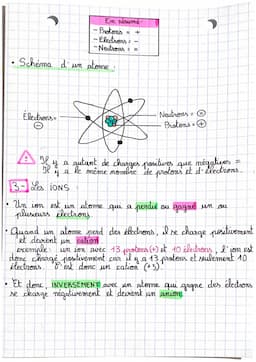 En résumé
- Protons = +
- Electrons = -
- Neutrons = =
• Schéma d'un atome :
Électrons = ⊖
Neutrons = ⊜
Protons = ⊕
Il y a autant de charges positives que négatives =
Il y a le même nombre de protons et d'électrons.
3 - Les ions :
• Un ion est un atome qui a perdu ou gagné un ou
plusieurs électrons
• Quand un atome perd des électrons, il se charge positivement
et devient un cation
exemple : un ion avec 13 protons (+) et 10 électrons, l'ion est
donc chargé positivement car il y a 13 protons et seulement 10
électrons. C'est donc un cation (+3).
• Et donc, INVERSEMENT avec un atome qui gagne des électrons
se charge négativement et devient un anion.